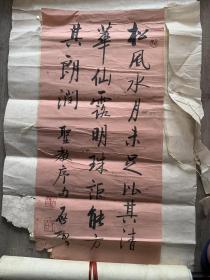 松風水月未足比其清
華仙露明珠詎能方
其朗潤 聖教序句 啓功